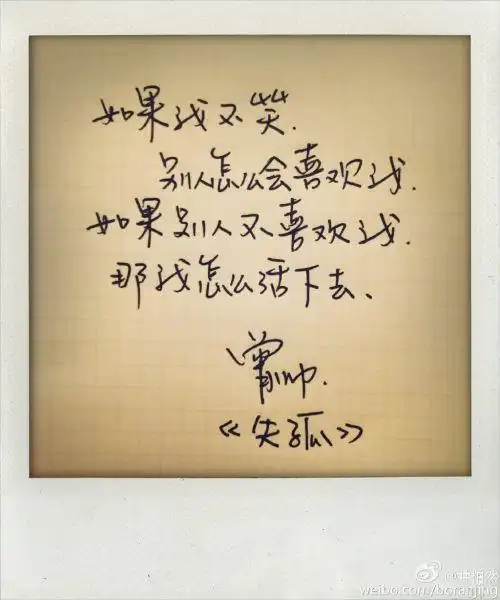 如果我不笑.
别人怎么会喜欢我.
如果别人不喜欢我.
那我怎么活下去.
曾帅.
《失孤》
@井柏然
weibo.com/boranjing